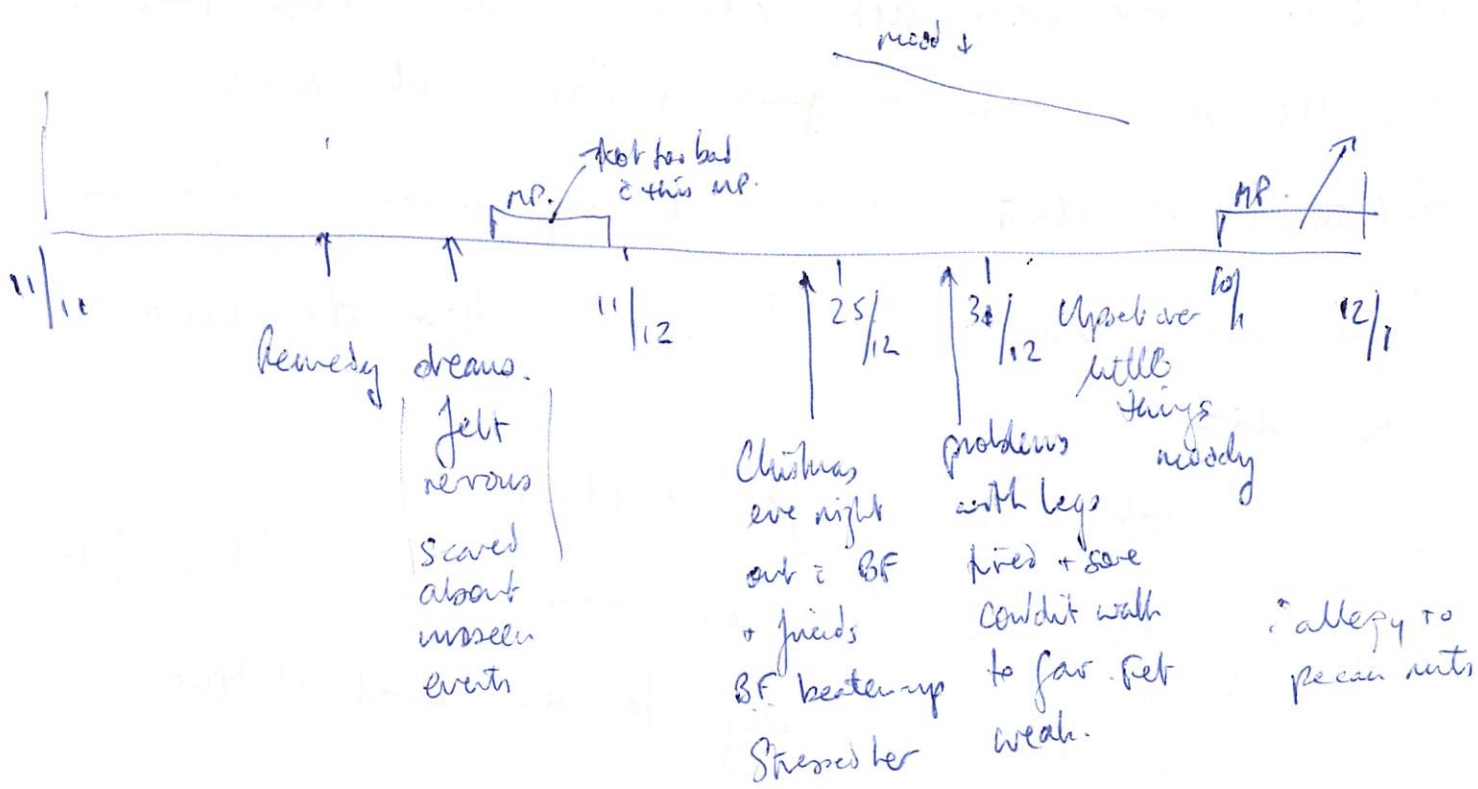 mood ↓
Not too bad
c̄ this MP.
MP.
MP.
11/11
11/12
25/12
31/12
10/1
12/1
Remedy
dreams.
felt
nervous
scared
about
unseen
events
Christmas
eve night
out c̄ BF
+ friends
BF beaten up
Stressed her
problems
with legs
tired + sore
couldn't walk
to far. Felt
weak.
Upset over
little
things
moody
allergy to
pecan nuts